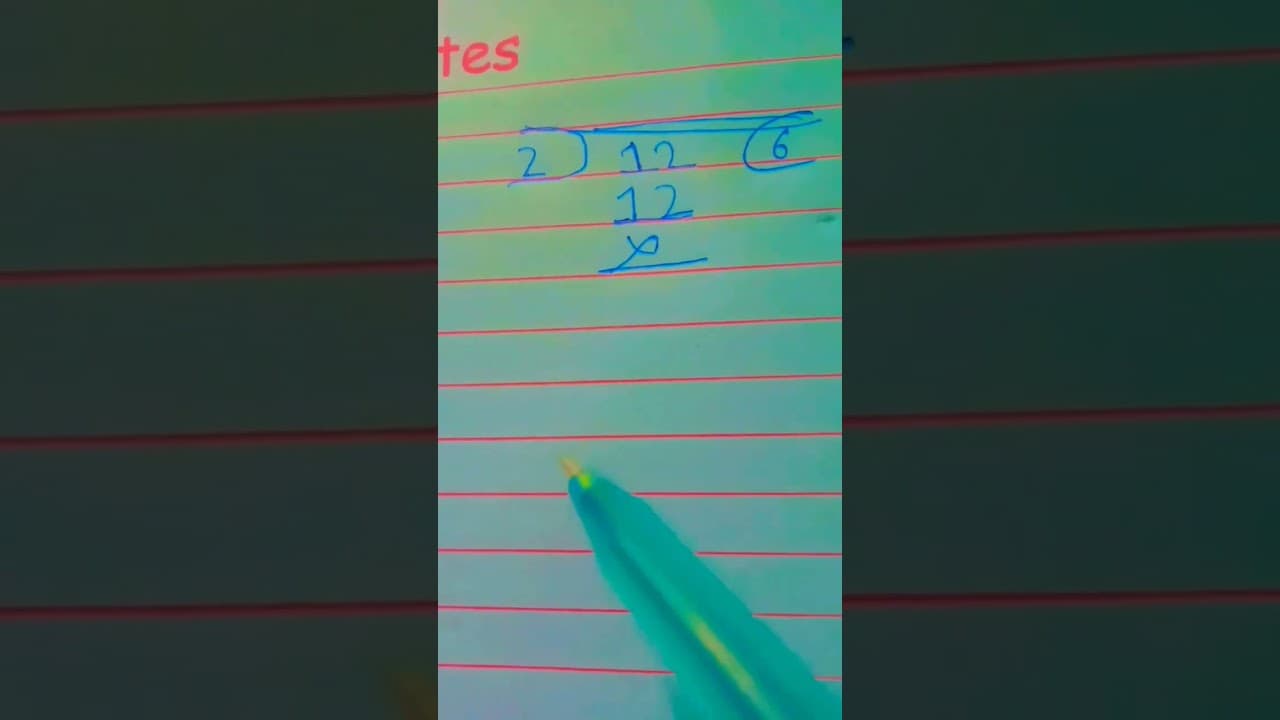 tes
2 ) 12 ( 6
12
x